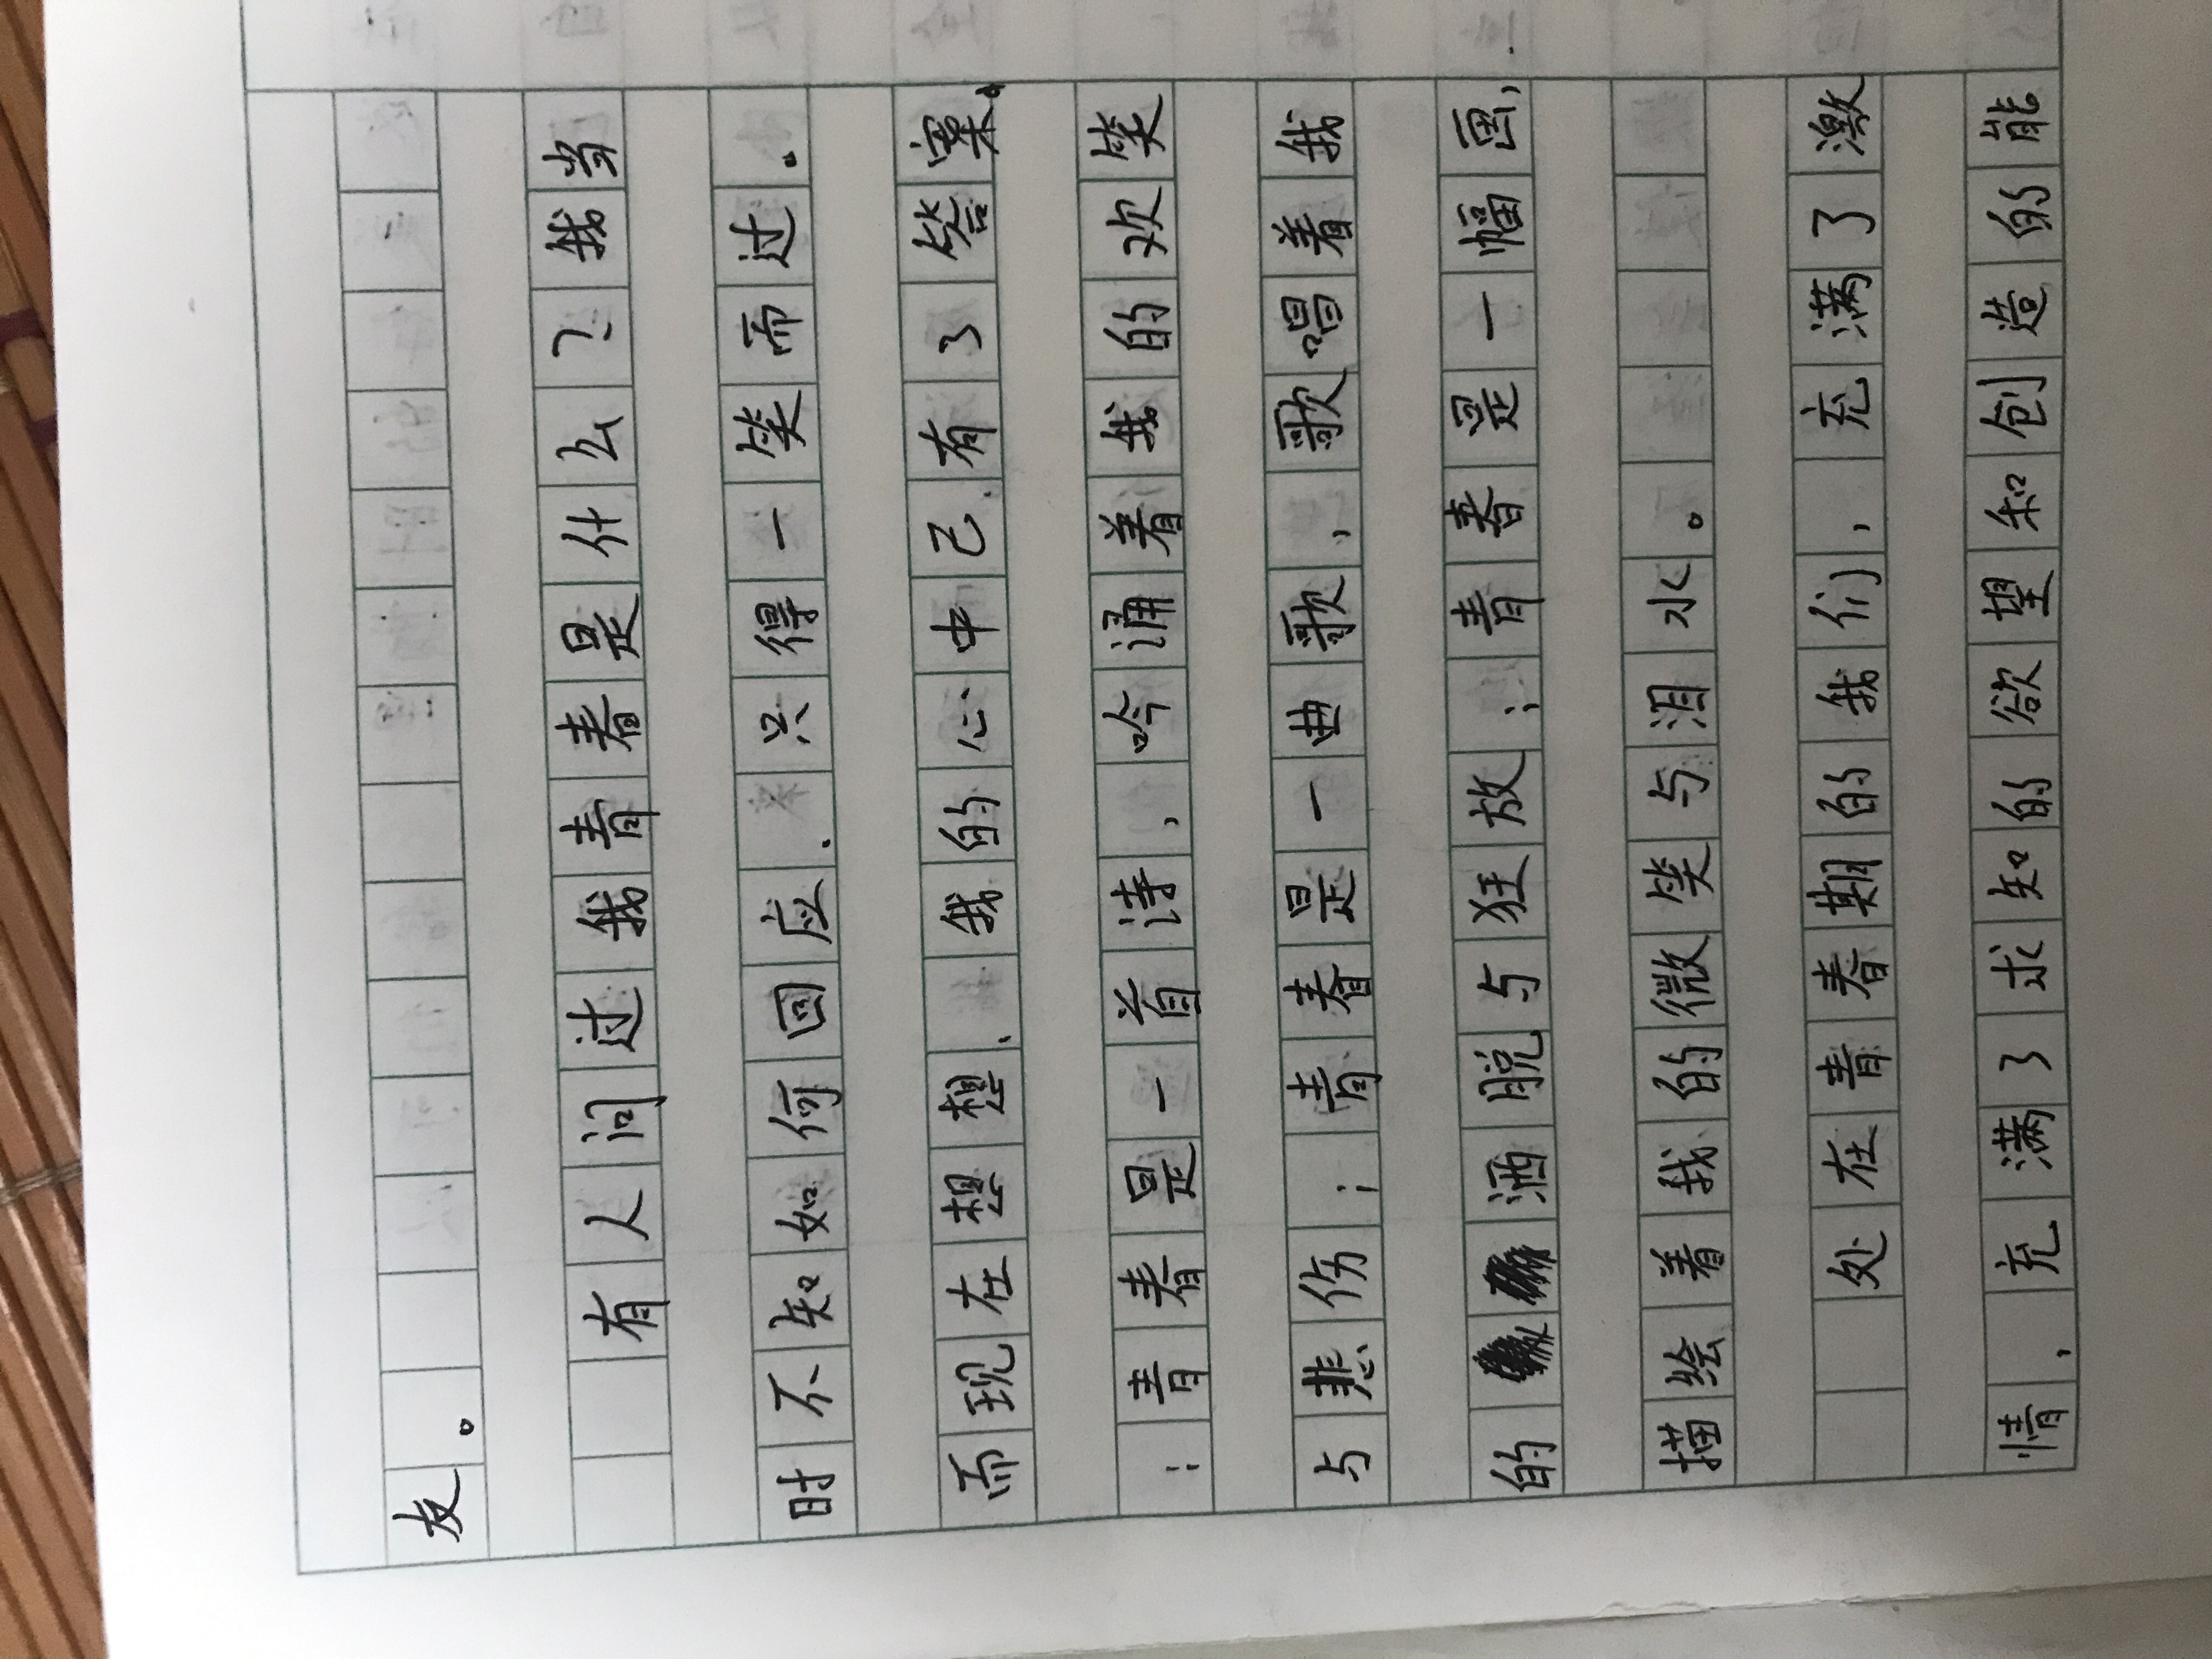 友。
有人问过我青春是什么?我当
时不知如何回应,只得一笑而过。
而现在想想,我的心中已有了答案。
:青春是一首诗,吟诵着我的欢笑
与悲伤;青春是一曲歌,歌唱着我
的洒脱与狂放;青春是一幅画,
描绘着我的微笑与泪水。
处在青春期的我们,充满了激
情,充满了求知的欲望和创造的能